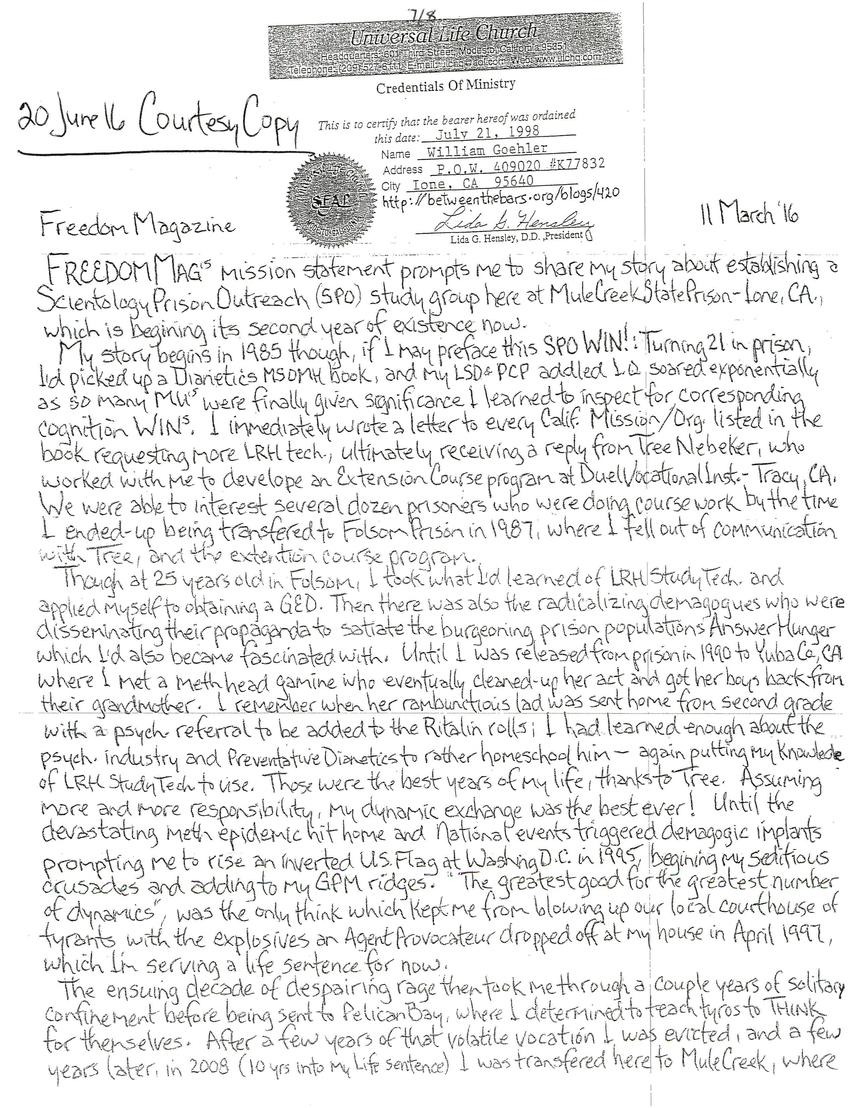 7/8
Universal Life Church
Headquarters: 601 Third Street, Modesto, California 95351
Telephone: (209) 527-8111
Credentials Of Ministry
20 June 16 Courtesy Copy
This is to certify that the bearer hereof was ordained
this date: July 21, 1998
Name William Goehler
Address P.O.W. 409020 #K77832
City Ione, CA 95640
http://betweenthebars.org/blogs/420
SEAL
Lida G. Hensley
Lida G. Hensley, D.D., President
Freedom Magazine
11 March '16
FREEDOM MAG's mission statement prompts me to share my story about establishing a
Scientology Prison Outreach (SPO) study group here at Mule Creek State Prison - Ione, CA.,
which is begining its second year of existence now.
My story begins in 1985 though, if I may preface this SPO WIN!: Turning 21 in prison,
I'd picked up a Dianetics MSOMH Book, and my LSD & PCP addled I.Q. soared exponentially
as so many MU's were finally given significance I learned to inspect for corresponding
cognition WINs. I immediately wrote a letter to every Calif. Mission/Org. listed in the
book requesting more LRH tech., ultimately receiving a reply from Tree Nebeker, who
worked with me to develope an Extension Course program at Duel Vocational Inst. - Tracy, CA.
We were able to interest several dozen prisoners who were doing course work by the time
I ended-up being transfered to Folsom Prison in 1987, where I fell out of communication
with Tree, and the extention course program.
Though at 25 years old in Folsom, I took what I'd learned of LRH Study Tech. and
applied myself to obtaining a GED. Then there was also the radicalizing demagogues who were
disseminating their propaganda to satiate the burgeoning prison populations Answer Hunger
which I'd also became fascinated with. Until I was released from prison in 1990 to Yuba Co., CA
where I met a meth head gamine who eventually cleaned-up her act and got her boys back from
their grandmother. I remember when her rambunctious lad was sent home from second grade
with a psych referral to be added to the Ritalin rolls; I had learned enough about the
psych. industry and Preventative Dianetics to rather homeschool him — again putting my Knowlede
of LRH Study Tech to use. Those were the best years of my life, thanks to Tree. Assuming
more and more responsibility, my dynamic exchange was the best ever! Until the
devastating meth epidemic hit home and National events triggered demagogic implants
prompting me to rise an inverted U.S. Flag at Washing D.C. in 1995, begining my seditious
crusades and adding to my GPM ridges. "The greatest good for the greatest number
of dynamics", was the only think which kept me from blowing up our local courthouse of
tyrants with the explosives an Agent Provocateur dropped off at my house in April 1997,
which I'm serving a life sentence for now.
The ensuing decade of despairing rage then took me through a couple years of solitary
confinement before being sent to Pelican Bay, where I determined to teach tyros to THINK
for themselves. After a few years of that volatile vocation I was evicted, and a few
years later, in 2008 (10 yrs into my Life sentence) I was transfered here to Mule Creek, where